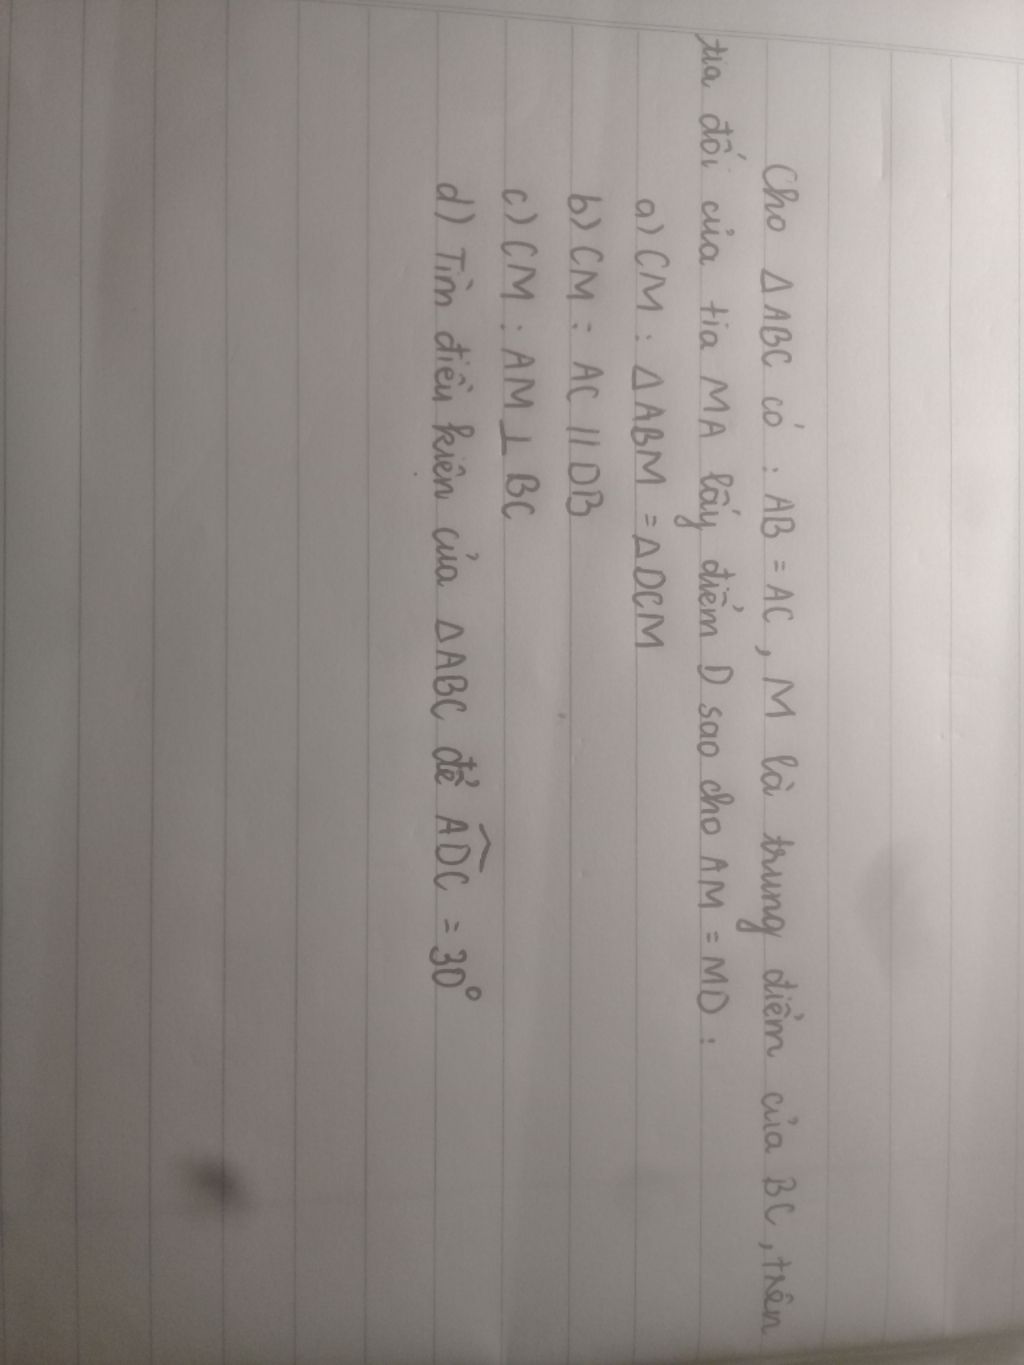 Cho ΔABC có : AB = AC , M là trung điểm của BC , trên
tia đối của tia MA lấy điểm D sao cho AM = MD :
a) CM : ΔABM = ΔDCM
b) CM : AC // DB
c) CM : AM ⊥ BC
d) Tìm điều kiện của ΔABC để \widehat{ADC} = 30°